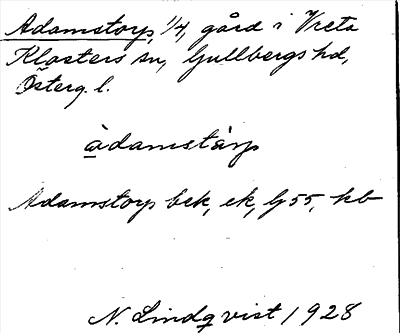 Adamstorp, 1/4, gård i Vreta
Klosters sn, Gullbergs hd,
Österg. l.
àdamstàrp
Adamstorp bek, ek, G 55, kb
N. Lindqvist 1928